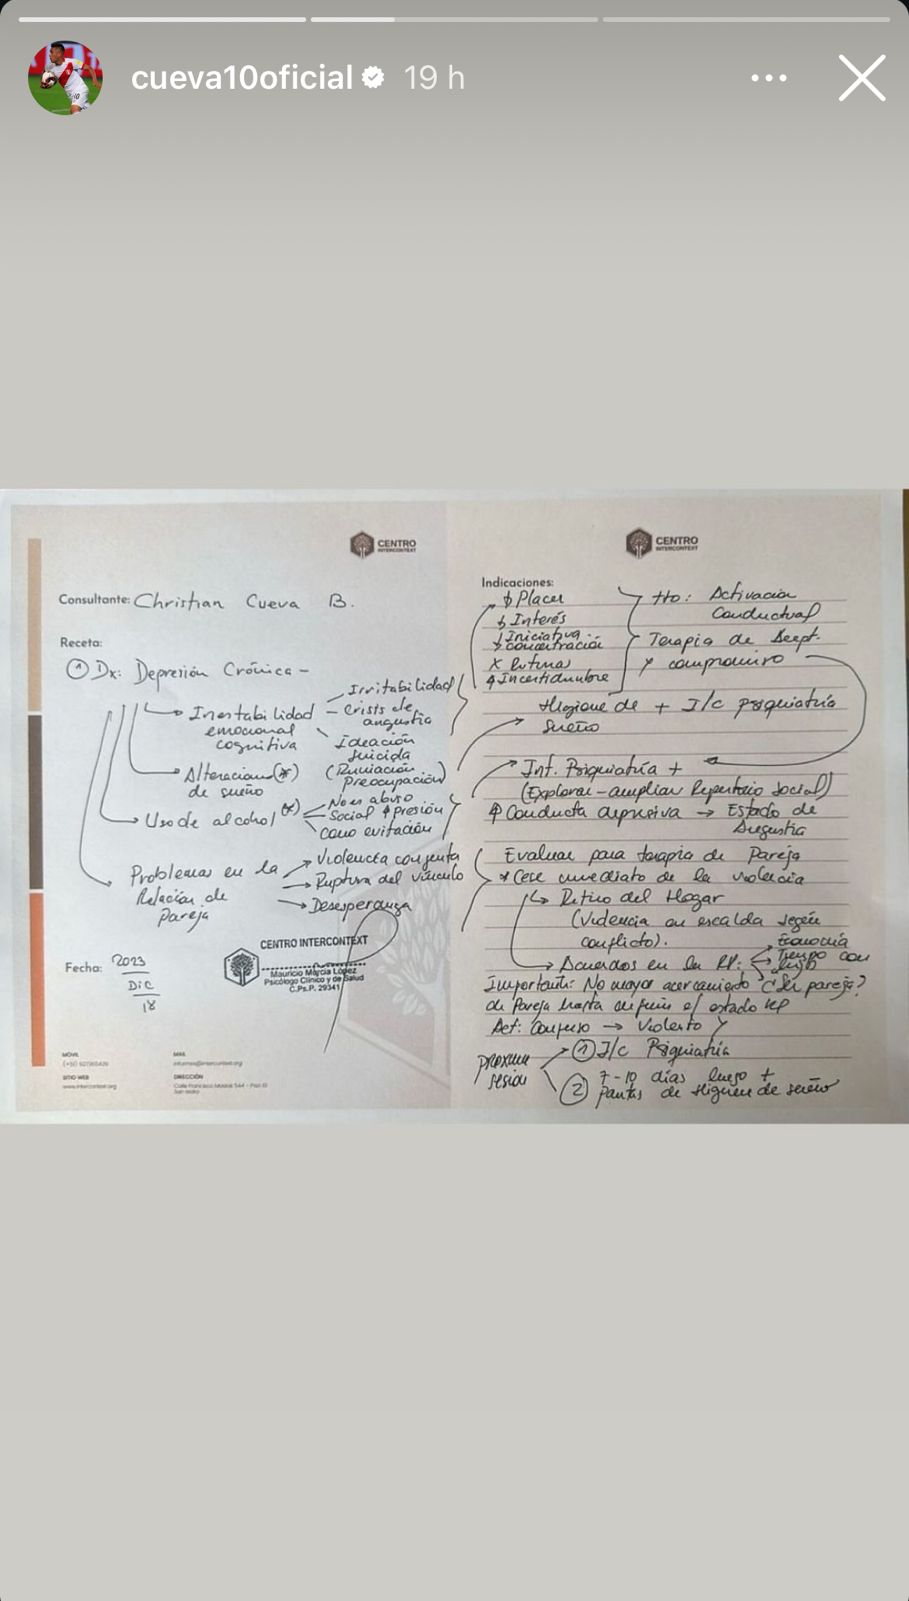 cueva10oficial 19 h
CENTRO
INTERCONTEXT
Consultante: Christian Cueva B.
Receta:
① Dx: Depresión Crónica -
Inestabilidad
emocional
cognitiva
- Irritabilidad
- Crisis de
angustia
Ideación
suicida
(Rumiación
preocupación)
Alteracion (*)
de sueño
Uso de alcohol (*)
No es abuso
Social ↑ presión
como evitación
Problemas en la
Relación de
pareja
Violencia conjunta
Ruptura del vínculo
Desesperanza
Fecha: 2023
Dic
18
CENTRO INTERCONTEXT
Mauricio Murcia López
Psicólogo Clínico y de Salud
C.Ps.P. 29341
MÓVIL
MAIL
informes@intercontext.org
SITIO WEB
www.intercontext.org
DIRECCIÓN
San Isidro
CENTRO
INTERCONTEXT
Indicaciones:
↓ Placer
↓ Interés
↓ Iniciativa
↓ concentración
X Rutinas
↑ Incertidumbre
tto: Activación
Conductual
Terapia de Acept.
y compromiso
Higiene de + I/c psiquiatría
sueño
Int. Psiquiatría +
(Explorar - ampliar Repertorio Social)
↑ Conducta depresiva → Estado de
Angustia
Evaluar para terapia de Pareja
* Cese inmediato de la violencia
↳ Retiro del Hogar
(Violencia en escalda según
conflicto).
→ Acuerdos en la RP:
Economía
Tiempo con
hijo
¿Ser pareja?
Importante: No mayor acercamiento
de Pareja hasta definir el estado RP
Act: Confuso → Violento
próxima
sesión
① I/c Psiquiatría
② 7-10 días luego +
pautas de Higiene de sueño